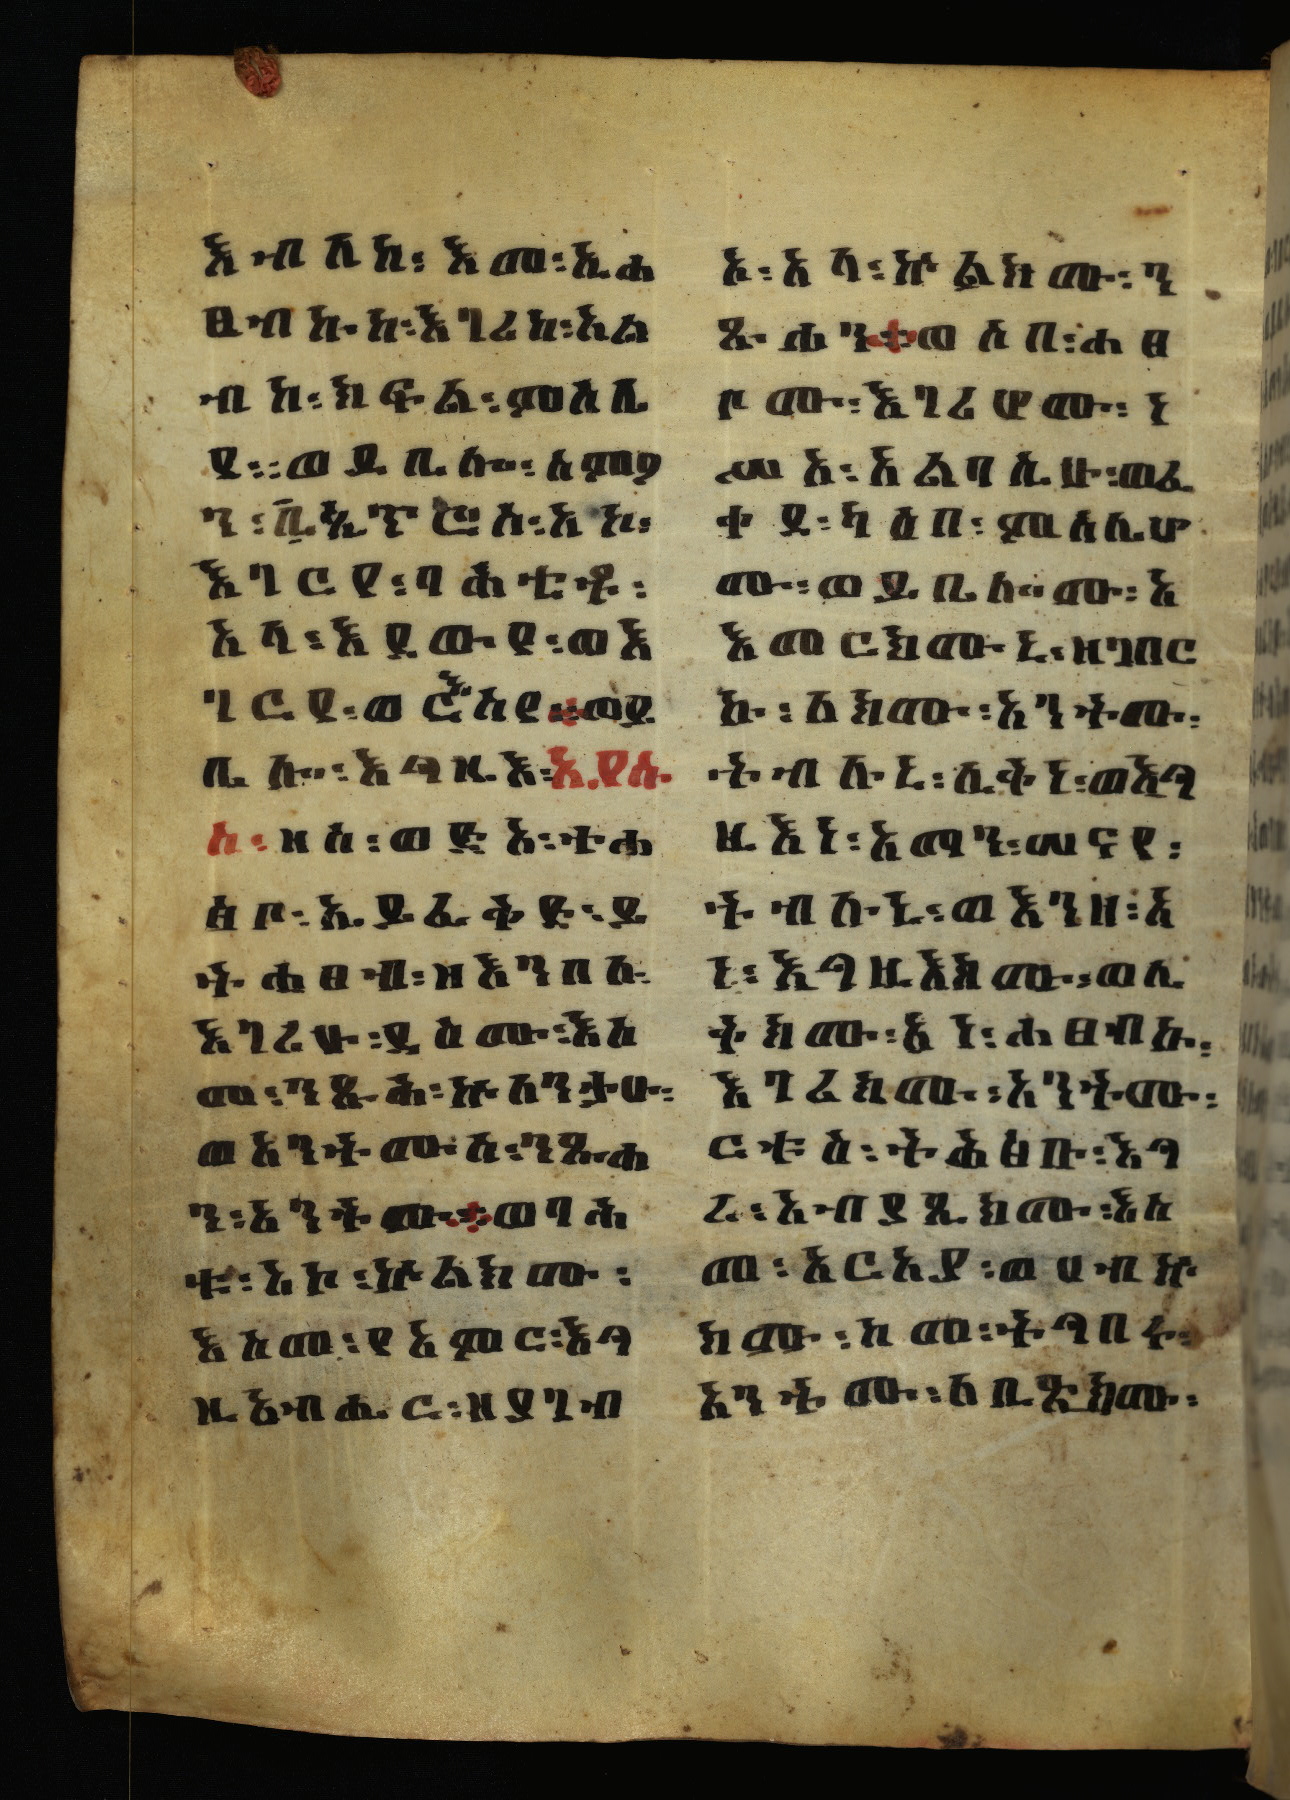 እብለከ፡ እመ፡ ኢሐ
ፀብኩከ፡ እገሪከ፡ አል
ብከ፡ ክፍል፡ ምስሌ
የ፡፡ ወይቤሎ፡ ስምዖ
ን፡ ጴጥሮስ፡ አኮ፡
እገርየ፡ ባሕቲቶ፡
አላ፡ እደውየ፡ ወእ
ገርየ፡ ወርእስየ። ወይ
ቤሎ፡ እግዚእ፡ ኢየሱ
ስ፡ ዘሰ፡ ወድአ፡ ተሐ
ፅበ፡ ኢይፈቅድ፡ ይ
ትሐፀብ፡ ዘእንበለ፡
እገሪሁ፡ ዳዕሙ፡ እስ
መ፡ ንጹሕ፡ ኵለንታሁ፡
ወአንትሙሰ፡ ንጹሐ
ን፡ አንትሙ። ወባሕ
ቱ፡ አኮ፡ ኵልክሙ፡
እስመ፡ የአምር፡ እግ
ዚአብሔር፡ ዘያገብ
እ፡ አላ፡ ኵልክሙ፡ ን
ጹሐን። ወሶበ፡ ሐፀ
ቦሙ፡ እገሪሆሙ፡ ነ
ሥአ፡ አልባሲሁ፡ ወረ
ቀደ፡ ካዕበ፡ ምስሌሆ
ሙ፡ ወይቤሎሙ፡ ኢ
አመርክሙኒ፡ ዘገበር
ኩ፡ ለክሙ፡ አንትሙ፡
ትብሉኒ፡ ሊቅነ፡ ወእግ
ዚእነ፡ እማን፡ ሠናየ፡
ትብሉኒ፡ ወእንዘ፡ አ
ነ፡ እግዚእክሙ፡ ወሊ
ቅክሙ፡ አነ፡ ሐፀብኩ፡
እገሪክሙ፡ አንትሙ፡
ርቱዕ፡ ትሕፅቡ፡ እግ
ረ፡ አብያጺክሙ፡ እስ
መ፡ አርአያ፡ ወሀብኩ
ክሙ፡ ከመ፡ ትግበሩ፡
አንትሙ፡ ለቢጽክሙ፡